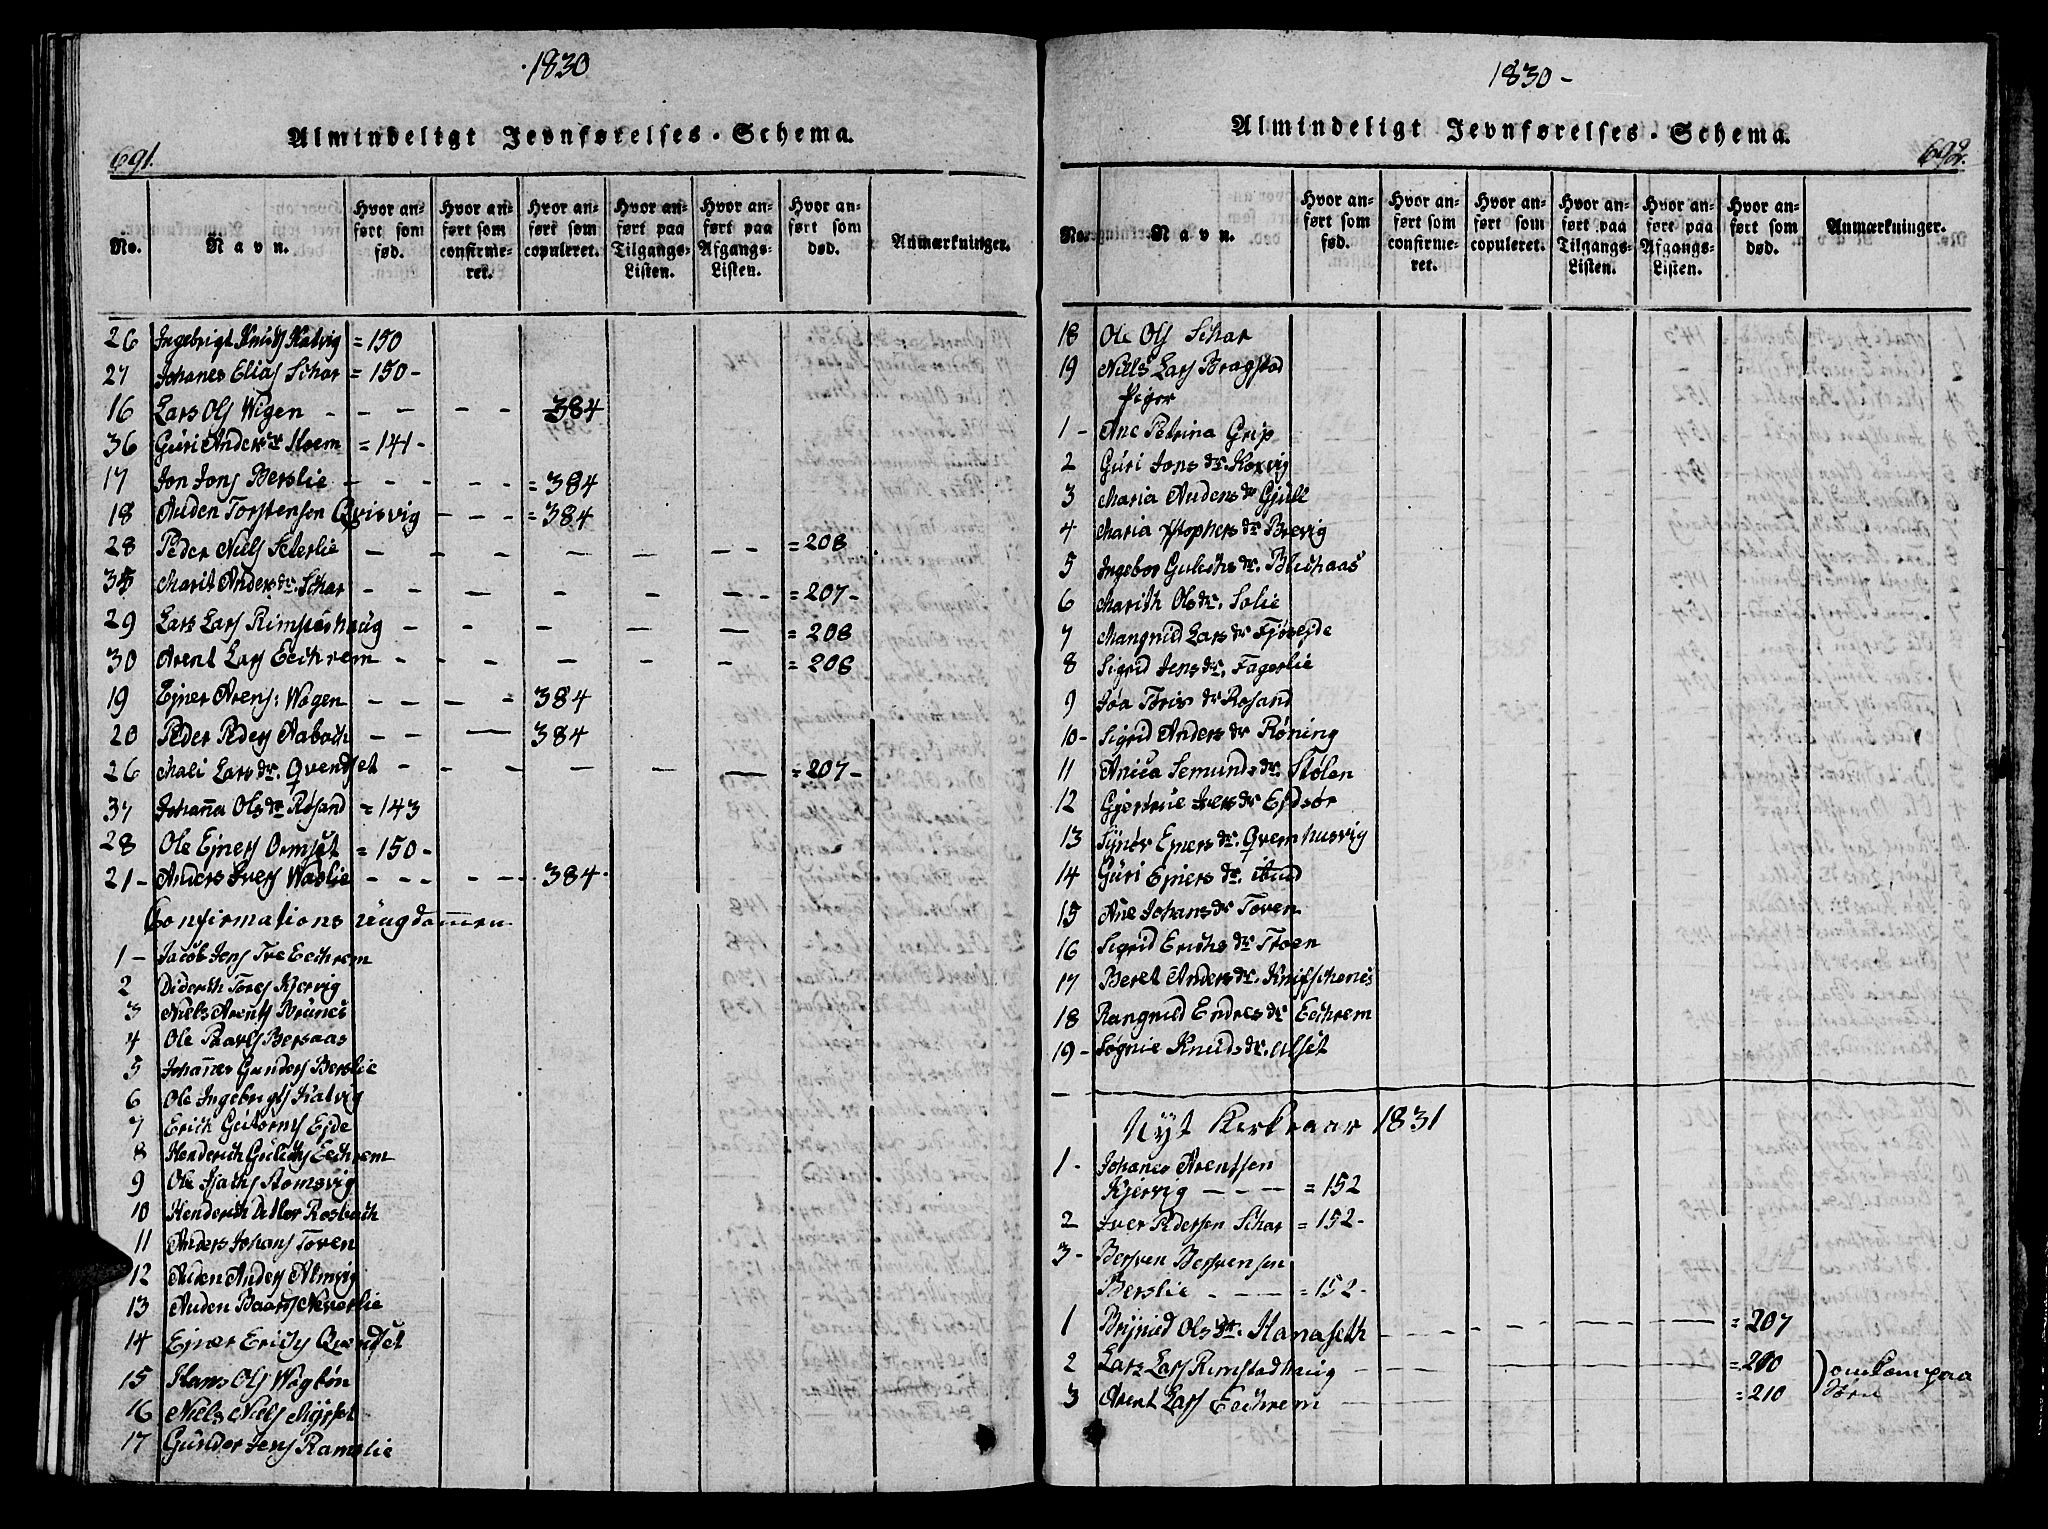 1830
Almindeligt Jevnførelses-Schema.
691.
No.
Navn.
Hvor anført som fød.
Hvor anført som confirmeret.
Hvor anført som copuleret.
Hvor anført paa Tilgangs-Listen.
Hvor anført paa Afgangs-Listen.
Hvor anført som død.
Anmærkninger.
26 Ingebrigt Knuds Katvig = 150
27 Johanes Elias Schar = 150 -
16 Lars Ols Wigen - - - - - 384
36 Guri Anders dr Stoem = 141 -
17 Jon Jons Berslie - - - - - = 384
18 Auden Torstensen Qvisvig - - - = 384
28 Peder Niels Seterlie - - - - - - - = 208
35 Marit Anders dr. Schar - - - - - - - = 207 -
29 Lars Lars Rimstashaug - - - - - = 208
30 Arent Lars Eechrem - - - - - - = 208
19 Ejner Arens: Wagen - - - - 384
20 Peder Peders Aaboch - - - 384
26 Mali Lars dr. Qvendset - - - - - - = 207 -
37 Johanna Ols dr Røsand = 143
28 Ole Ejners Ormset = 150 -
21 - Anders Ivers Waslie - - - - - 384 -
Confirmations Ungdommen
1 - Jacob Jens Tre Eechrem
2 Diderich Tores Kjervig
3 Niels Arents Brunes
4 Ole Paavls Bersaas
5 Johannes Gunders Berslie
6 Ole Ingebrigts Katvig
7 Erich Guttorms Ejde
8 Henderich Gulichs Eechrem
9 Ole Ifaths Romsvig
10 Henderich Ditlev Rosbach
11 Anders Johans Toven
12 Auden Anders Almvig
13 Auden Baars Neverlie
14 Ejner Erichs Qvendset
15 Hans Ols Wagbøn
16 Niels Niels Myrset
17 Gunder Jens Ramslie
1830 -
Almindeligt Jevnførelses-Schema.
692.
No.
Navn.
Hvor anført som fød.
Hvor anført som confirmeret.
Hvor anført som copuleret.
Hvor anført paa Tilgangs-Listen.
Hvor anført paa Afgangs-Listen.
Hvor anført som død.
Anmærkninger.
18 Ole Ols Schar
19 Niels Lars Bragstad
Piger
1 - Ane Petrina Grip
2 Guri Jons dr. Korvig
3 Maria Audens dr Gjull
4 Maria Xstophers dr Brevig
5 Ingebor Gulichs dr. Blichaas
6 Marith Ols dr. Solie
7 Mangnild Lars dr Fjørejde
8 Sigrid Jens dr. Fagerlie
9 Joa Toris dr Rosand
10 - Sigrid Anders dr Røning
11 Anica Semunds dr. Stølen
12 Gjertrue Ivers dr Ejdsør
13 Synøv Ejners dr. Qvernhusvig
14 Guri Ejners dr. Aund
15 Ane Johans dr Toven
16 Sigrid Erichs dr. Stoen
17 Beret Anders dr. Knifschenes
18 Rangnild Endres dr Eechrem
19 - Søgnie Knuds dr. Ulset
Nyt Kirkeaar 1831
1 - Johanes Arentsen
Kjervig - - - = 152
2 Iver Pedersen Schar = 152 -
3 - Bersven Bersvensen
Berslie - - = 152 -
1 Brynild Ols dr. Hanaseth - - - - - - - = 207
2 Lars Lars Rimstadhaug - - - - - = 210
3 Arent Lars Eechrem - - - - - = 210
omkom paa
Søen